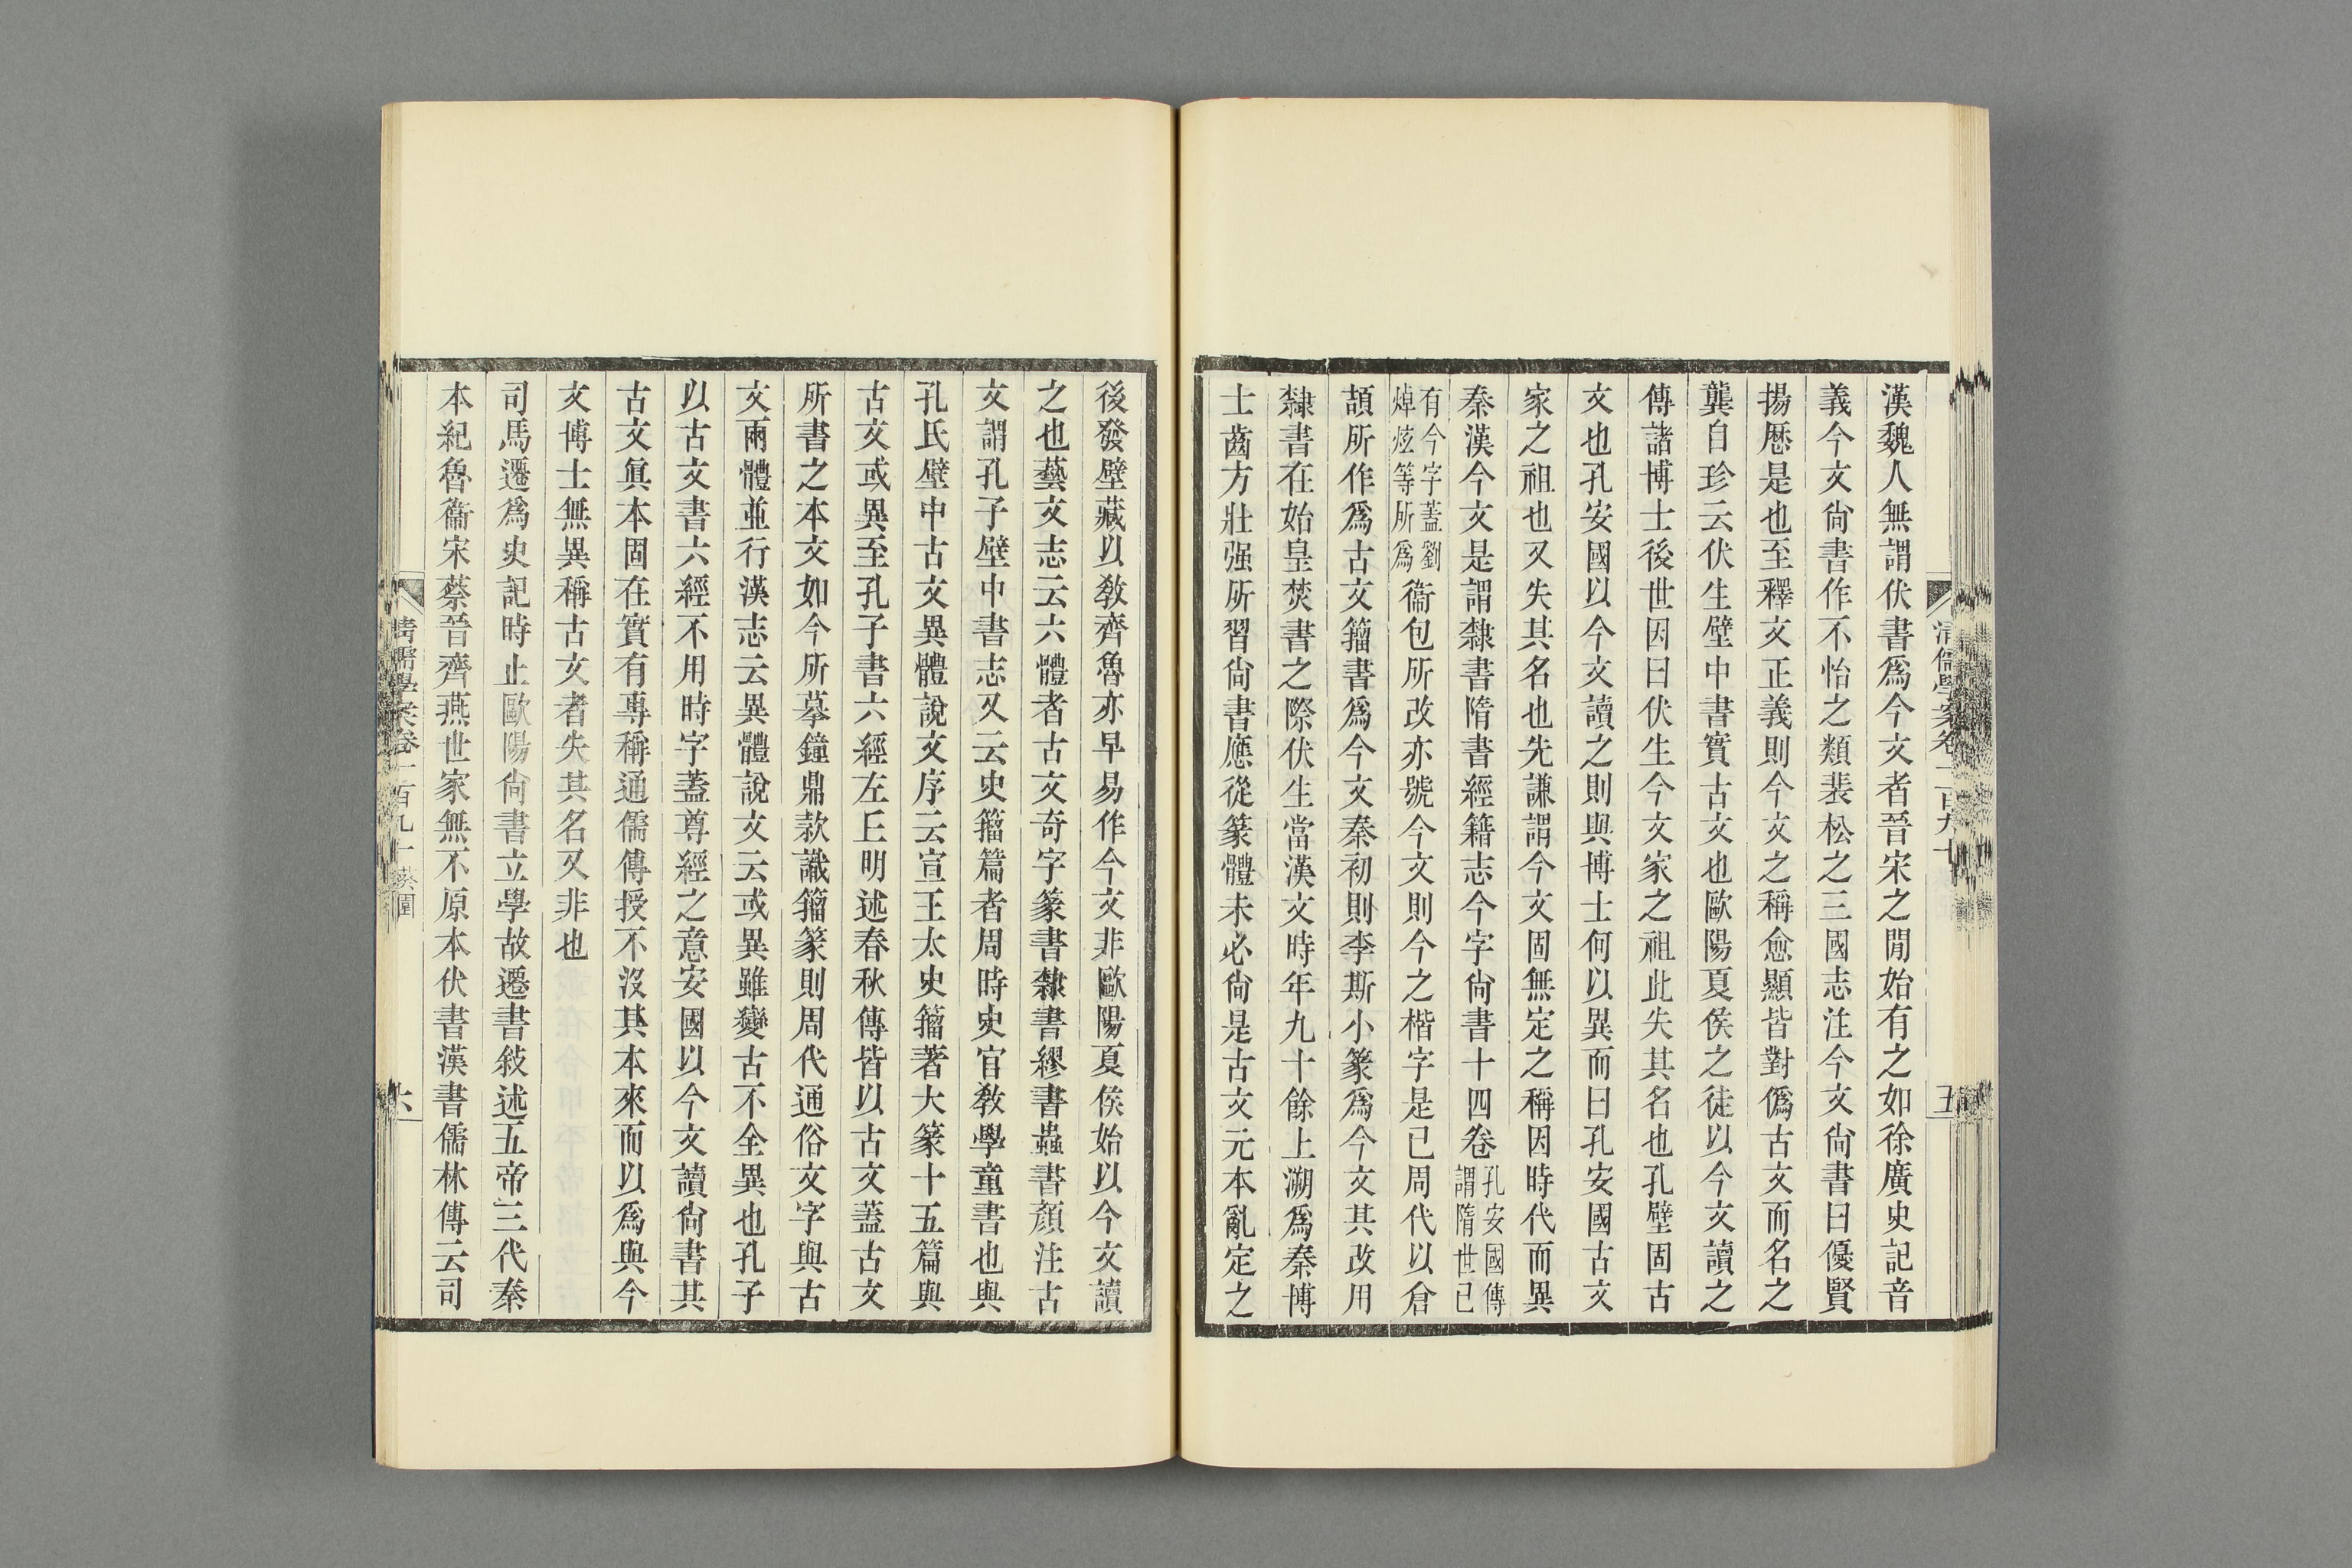 漢魏人無謂伏書爲今文者晉宋之閒始有之如徐廣史記音
義今文尙書作不怡之類裴松之三國志注今文尙書曰優賢
揚歷是也至釋文正義則今文之稱愈顯皆對僞古文而名之
龔自珍云伏生壁中書實古文也歐陽夏侯之徒以今文讀之
傳諸博士後世因曰伏生今文家之祖此失其名也孔壁固古
文也孔安國以今文讀之則與博士何以異而曰孔安國古文
家之祖也又失其名也先謙謂今文固無定之稱因時代而異
秦漢今文是謂隸書隋書經籍志今字尙書十四卷孔安國傳謂隋世已
有今字蓋劉焯炫等所爲衞包所改亦號今文則今之楷字是已周代以倉
頡所作爲古文籀書爲今文秦初則李斯小篆爲今文其改用
隸書在始皇焚書之際伏生當漢文時年九十餘上溯爲秦博
士齒方壯强所習尙書應從篆體未必尙是古文元本亂定之
清儒學案卷一百九十
五
後發壁藏以敎齊魯亦早易作今文非歐陽夏侯始以今文讀
之也藝文志云六體者古文奇字篆書隸書繆書蟲書顏注古
文謂孔子壁中書志又云史籀篇者周時史官敎學童書也與
孔氏壁中古文異體說文序云宣王太史籀著大篆十五篇與
古文或異至孔子書六經左丘明述春秋傳皆以古文蓋古文
所書之本文如今所摹鐘鼎款識籀篆則周代通俗文字與古
文兩體並行漢志云異體說文云或異雖變古不全異也孔子
以古文書六經不用時字蓋尊經之意安國以今文讀尙書其
古文眞本固在實有專稱通儒傳授不沒其本來而以爲與今
文博士無異稱古文者失其名又非也
司馬遷爲史記時止歐陽尙書立學故遷書敍述五帝三代秦
本紀魯衞宋蔡晉齊燕世家無不原本伏書漢書儒林傳云司
清儒學案卷一百九十 葵園
六